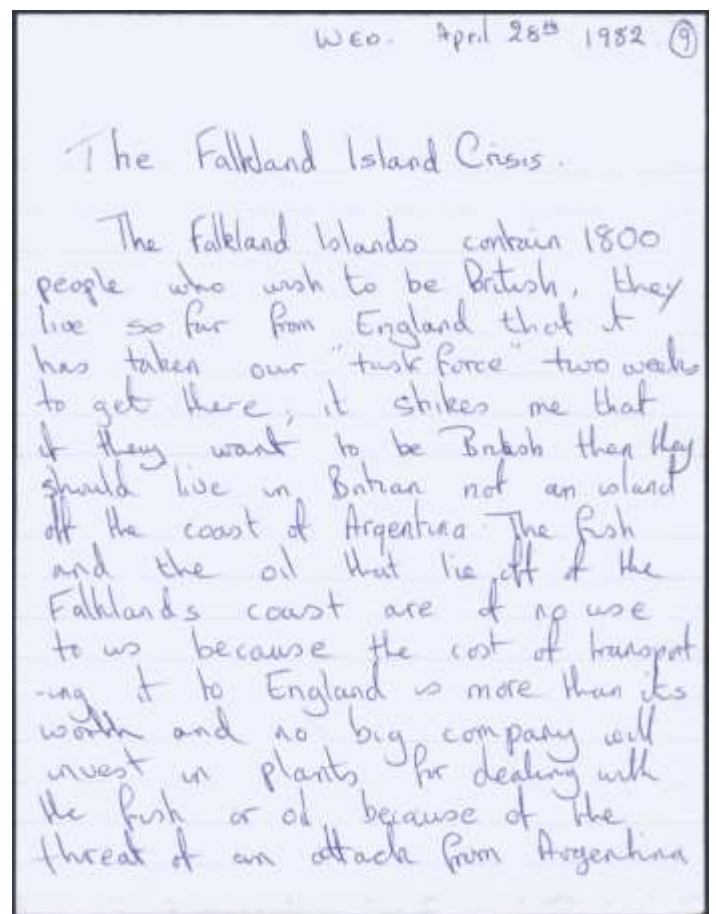 WED. April 28th 1982 9
The Falkland Island Crisis.
The Falkland Islands contain 1800
people who wish to be British, they
live so far from England that it
has taken our "task force" two weeks
to get there, it strikes me that
if they want to be British then they
should live in Britian not an island
off the coast of Argentina. The fish
and the oil that lie off of the
Falklands coast are of no use
to us because the cost of transport
-ing it to England is more than its
worth and no big company will
invest in plants for dealing with
the fish or oil because of the
threat of an attack from Argentina